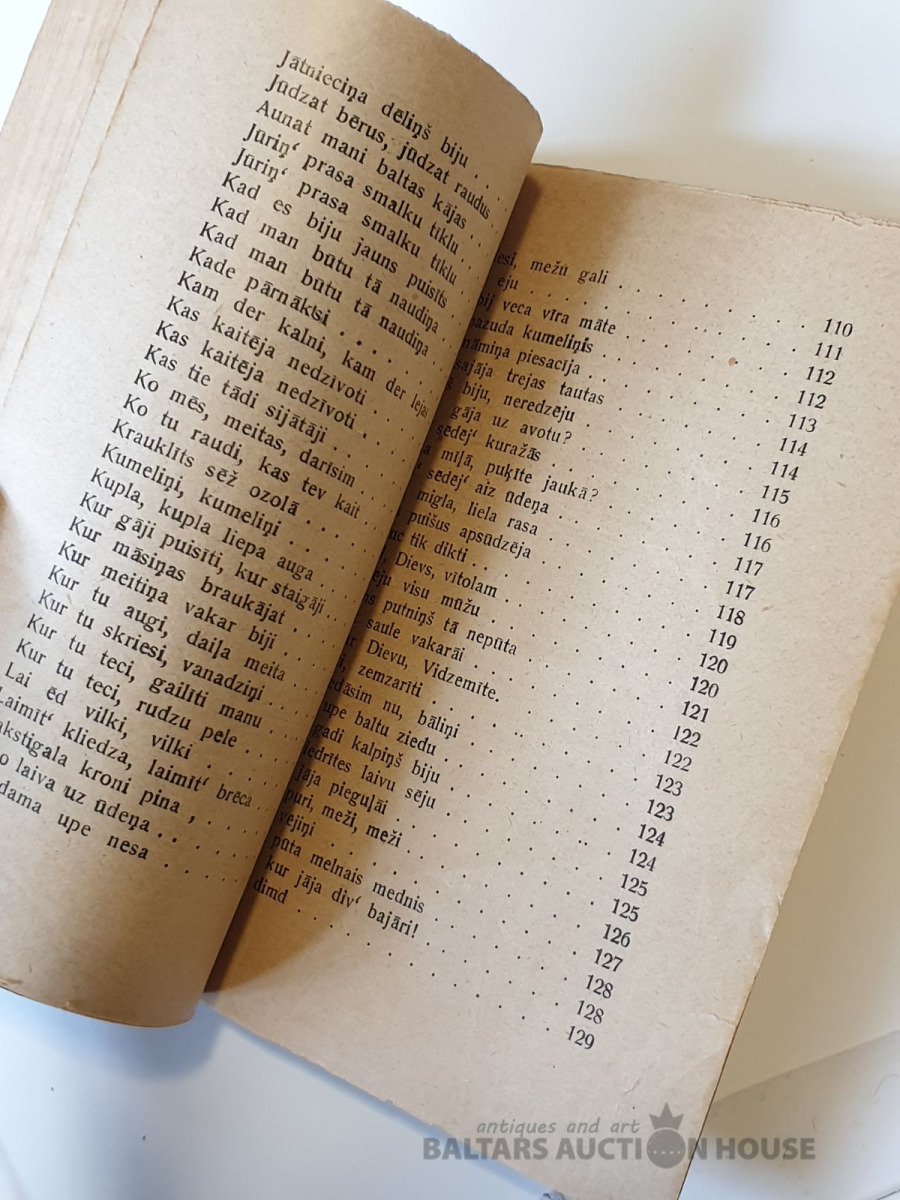 Jātnieciņa dēliņš biju . . .
Jūdzat bērus, jūdzat raudus
Aunat mani baltas kājas . .
Jūriņ‘ prasa smalku tīklu .
Jūriņ‘ prasa smalku tīklu .
Kad es biju jauns puisīts . .
Kad man būtu tā naudiņa
Kad man būtu tā naudiņa
Kade pārnāktsi . . . .
Kam der kalni, kam der lejas
Kas kaitēja nedzīvoti . .
Kas kaitēja nedzīvoti .
Kas tie tādi sijātāji . .
Ko mēs, meitas, darīsim . .
Ko tu raudi, kas tev kait
Krauklīts sēž ozolā . .
Kumeliņi, kumeliņi . .
Kupla, kupla liepa auga
Kur gāji puisīti, kur staigāji
Kur māsiņas braukājat . .
Kur meitiņa vakar biji . .
Kur tu augi, daiļa meita
Kur tu skriesi, vanadziņi
Kur tu teci, gailīti manu
Kur tu teci, rudzu pele . .
Lai ēd vilki, vilki . . .
Laimīt‘ kliedza, laimīt‘ brēca
kstīgala kroni pina , . .
o laiva uz ūdeņa . . . .
dama upe nesa . . . .
esi, mežu gali . . . . . 110
eju . . . . . . . 111
bij veca vīra māte . . . 112
pazuda kumeliņis . . . 112
nāmiņa piesacīja . . . 113
sajāja trejas tautas . . . 114
š biju, neredzēju . . . 114
gāja uz avotu? . . . 115
sēdēj‘ kuražās . . . 116
a mīļā, puķīte jaukā? . . . 116
sēdēj‘ aiz ūdeņa . . . 117
migla, liela rasa . . . 117
puišus apsūdzēja . . . 118
uc tik dikti . . . 119
Dievs, vītolam . . . 120
ēju visu mūžu . . . 120
ns putniņš tā nepūta . . . 121
saule vakarāi . . . 122
r Dievu, Vidzemīte. . . . 122
i, zemzarīti . . . 123
edāsim nu, bāliņi . . . 123
upe baltu ziedu . . . 124
gadi kalpiņš biju . . . 124
iedrītes laivu sēju . . . 125
jāja pieguļāi . . . 125
puri, meži, meži . . . 126
vējiņi . . . 127
pūta melnais mednis . . . 128
kur jāja div‘ bajāri! . . . 128
dimd . . . 129
antiques and art
BALTARS AUCTION HOUSE